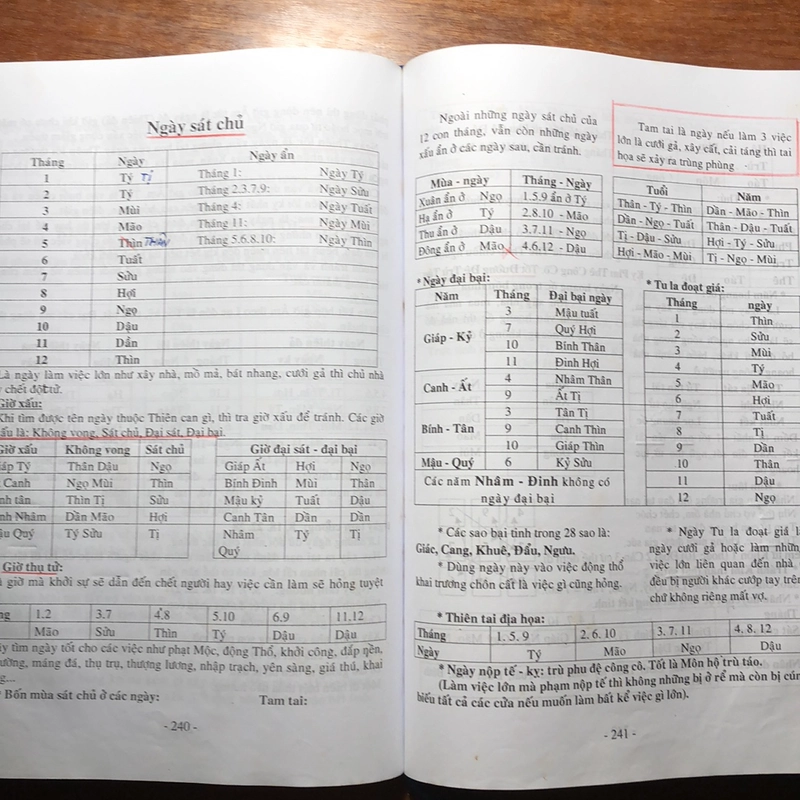 Ngày sát chủ
Tháng Ngày Ngày ẩn
1 Tý Tị Tháng 1: Ngày Tý
2 Tý Tháng 2.3.7.9: Ngày Sửu
3 Mùi Tháng 4: Ngày Tuất
4 Mão Tháng 11: Ngày Mùi
5 Thìn THÂN Tháng 5.6.8.10: Ngày Thìn
6 Tuất
7 Sửu
8 Hợi
9 Ngọ
10 Dậu
11 Dần
12 Thìn
Là ngày làm việc lớn như xây nhà, mồ mả, bát nhang, cưới gả thì chủ nhà
chết đột tử.
Giờ xấu:
Khi tìm được tên ngày thuộc Thiên can gì, thì tra giờ xấu để tránh. Các giờ
xấu là: Không vong, Sát chủ, Đại sát, Đại bại.
Giờ xấu Không vong Sát chủ
Tý Thân Dậu Ngọ
Canh Ngọ Mùi Thìn
tân Thìn Tị Sửu
Nhâm Dần Mão Hợi
Quý Tý Sửu Tị
Giờ đại sát - đại bại
Giáp Ất Hợi Ngọ
Bính Đinh Mùi Thân
Mậu kỷ Tuất Dậu
Canh Tân Dần Dần
Nhâm Tý Tị
Quý
Giờ thụ tử:
giờ mà khởi sự sẽ dẫn đến chết người hay việc cần làm sẽ hỏng tuyệt
1.2 3.7 4.8 5.10 6.9 11.12
Mão Sửu Thìn Tý Dậu Dậu
tìm ngày tốt cho các việc như phạt Mộc, động Thổ, khởi công, đắp nền,
máng đá, thụ trụ, thượng lương, nhập trạch, yên sàng, giá thú, khai
* Bốn mùa sát chủ ở các ngày: Tam tai:
- 240 -
Ngoài những ngày sát chủ của
12 con tháng, vẫn còn những ngày
xấu ẩn ở các ngày sau, cần tránh.
Mùa - ngày Tháng - Ngày
Xuân ẩn ở Ngọ 1.5.9 ẩn ở Tý
Hạ ẩn ở Tý 2.8.10 - Mão
Thu ẩn ở Dậu 3.7.11 - Ngọ
Đông ẩn ở Mão 4.6.12 - Dậu
Tam tai là ngày nếu làm 3 việc
lớn là cưới gả, xây cất, cải táng thì tai
họa sẽ xảy ra trùng phùng
Tuổi Năm
Thân - Tý - Thìn Dần - Mão - Thìn
Dần - Ngọ - Tuất Thân - Dậu - Tuất
Tị - Dậu - Sửu Hợi - Tý - Sửu
Hợi - Mão - Mùi Tị - Ngọ - Mùi
* Ngày đại bại:
Năm Tháng Đại bại ngày
Giáp - Kỷ 3 Mậu tuất
7 Quý Hợi
10 Bính Thân
11 Đinh Hợi
Canh - Ất 4 Nhâm Thân
9 Ất Tị
Bính - Tân 3 Tân Tị
9 Canh Thìn
10 Giáp Thìn
Mậu - Quý 6 Kỷ Sửu
Các năm Nhâm - Đinh không có
ngày đại bại
* Tu la đoạt giá:
Tháng ngày
1 Thìn
2 Sửu
3 Mùi
4 Tý
5 Mão
6 Hợi
7 Tuất
8 Tị
9 Dần
10 Thân
11 Dậu
12 Ngọ
* Các sao bại tinh trong 28 sao là:
Giác, Cang, Khuê, Đẩu, Ngưu.
* Dùng ngày này vào việc động thổ
khai trương chôn cất là việc gì cũng hỏng.
* Ngày Tu la đoạt giá
ngày cưới gả hoặc làm những
việc lớn liên quan đến nhà
đều bị người khác cướp tay trên
chứ không riêng mất vợ.
* Thiên tai địa họa:
Tháng 1. 5. 9 2. 6. 10 3. 7. 11 4. 8. 12
Ngày Tý Mão Ngọ Dậu
* Ngày nộp tế - kỵ: trù phu đệ công cô. Tốt là Môn hộ trù táo.
(Làm việc lớn mà phạm nộp tế thì không những bị ở rể mà còn bị
biếu tất cả các cửa nếu muốn làm bất kể việc gì lớn).
- 241 -